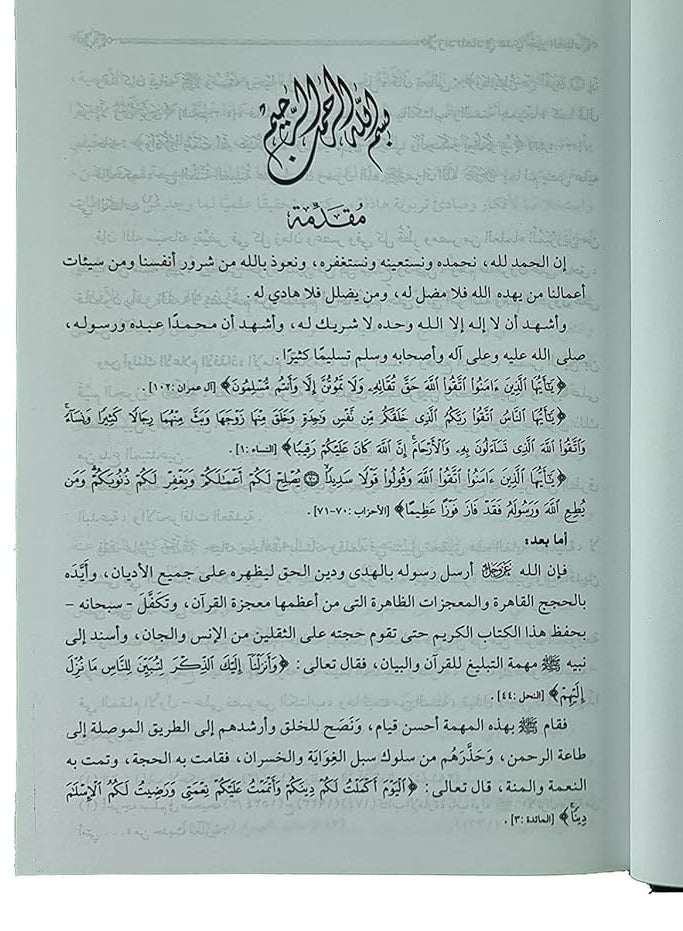 بسم الله الرحمن الرحيم
مُقَدِّمة
إن الحمد لله، نحمده ونستعينه ونستغفره، ونعوذ بالله من شرور أنفسنا ومن سيئات
أعمالنا من يهده الله فلا مضل له، ومن يضلل فلا هادي له .
وأشهد أن لا إله إلا الله وحده لا شريك له، وأشهد أن محمدًا عبده ورسوله،
صلى الله عليه وعلى آله وأصحابه وسلم تسليمًا كثيرًا .
﴿يَٰٓأَيُّهَا ٱلَّذِينَ ءَامَنُوا۟ ٱتَّقُوا۟ ٱللَّهَ حَقَّ تُقَاتِهِۦ وَلَا تَمُوتُنَّ إِلَّا وَأَنتُم مُّسْلِمُونَ﴾ [آل عمران :١٠٢] .
﴿يَٰٓأَيُّهَا ٱلنَّاسُ ٱتَّقُوا۟ رَبَّكُمُ ٱلَّذِى خَلَقَكُم مِّن نَّفْسٍ وَٰحِدَةٍ وَخَلَقَ مِنْهَا زَوْجَهَا وَبَثَّ مِنْهُمَا رِجَالًا كَثِيرًا وَنِسَآءً ۚ
وَٱتَّقُوا۟ ٱللَّهَ ٱلَّذِى تَسَآءَلُونَ بِهِۦ وَٱلْأَرْحَامَ ۚ إِنَّ ٱللَّهَ كَانَ عَلَيْكُمْ رَقِيبًا﴾ [النساء :١] .
﴿يَٰٓأَيُّهَا ٱلَّذِينَ ءَامَنُوا۟ ٱتَّقُوا۟ ٱللَّهَ وَقُولُوا۟ قَوْلًا سَدِيدًا ۝٧٠ يُصْلِحْ لَكُمْ أَعْمَٰلَكُمْ وَيَغْفِرْ لَكُمْ ذُنُوبَكُمْ ۗ وَمَن
يُطِعِ ٱللَّهَ وَرَسُولَهُۥ فَقَدْ فَازَ فَوْزًا عَظِيمًا﴾ [الأحزاب :٧٠-٧١] .
أما بعد:
فإن الله عَزَّ وَجَلَّ أرسل رسوله بالهدى ودين الحق ليظهره على جميع الأديان، وأيَّده
بالحجج القاهرة والمعجزات الظاهرة التى من أعظمها معجزة القرآن، وتكفَّلَ - سبحانه -
بحفظ هذا الكتاب الكريم حتى تقوم حجته على الثقلين من الإنس والجان، وأسند إلى
نبيه ﷺ مهمة التبليغ للقرآن والبيان، فقال تعالى : ﴿وَأَنزَلْنَآ إِلَيْكَ ٱلذِّكْرَ لِتُبَيِّنَ لِلنَّاسِ مَا نُزِّلَ
إِلَيْهِمْ﴾ [النحل :٤٤] .
فقام ﷺ بهذه المهمة أحسن قيام، ونَصَح للخلق وأرشدهم إلى الطريق الموصلة إلى
طاعة الرحمن، وحَذَّرَهُم من سلوك سبل الغِوَايَة والخسران، فقامت به الحجة، وتمت به
النعمة والمنة، قال تعالى : ﴿ٱلْيَوْمَ أَكْمَلْتُ لَكُمْ دِينَكُمْ وَأَتْمَمْتُ عَلَيْكُمْ نِعْمَتِى وَرَضِيتُ لَكُمُ ٱلْإِسْلَٰمَ
دِينًا ۚ﴾ [المائدة :٣] .